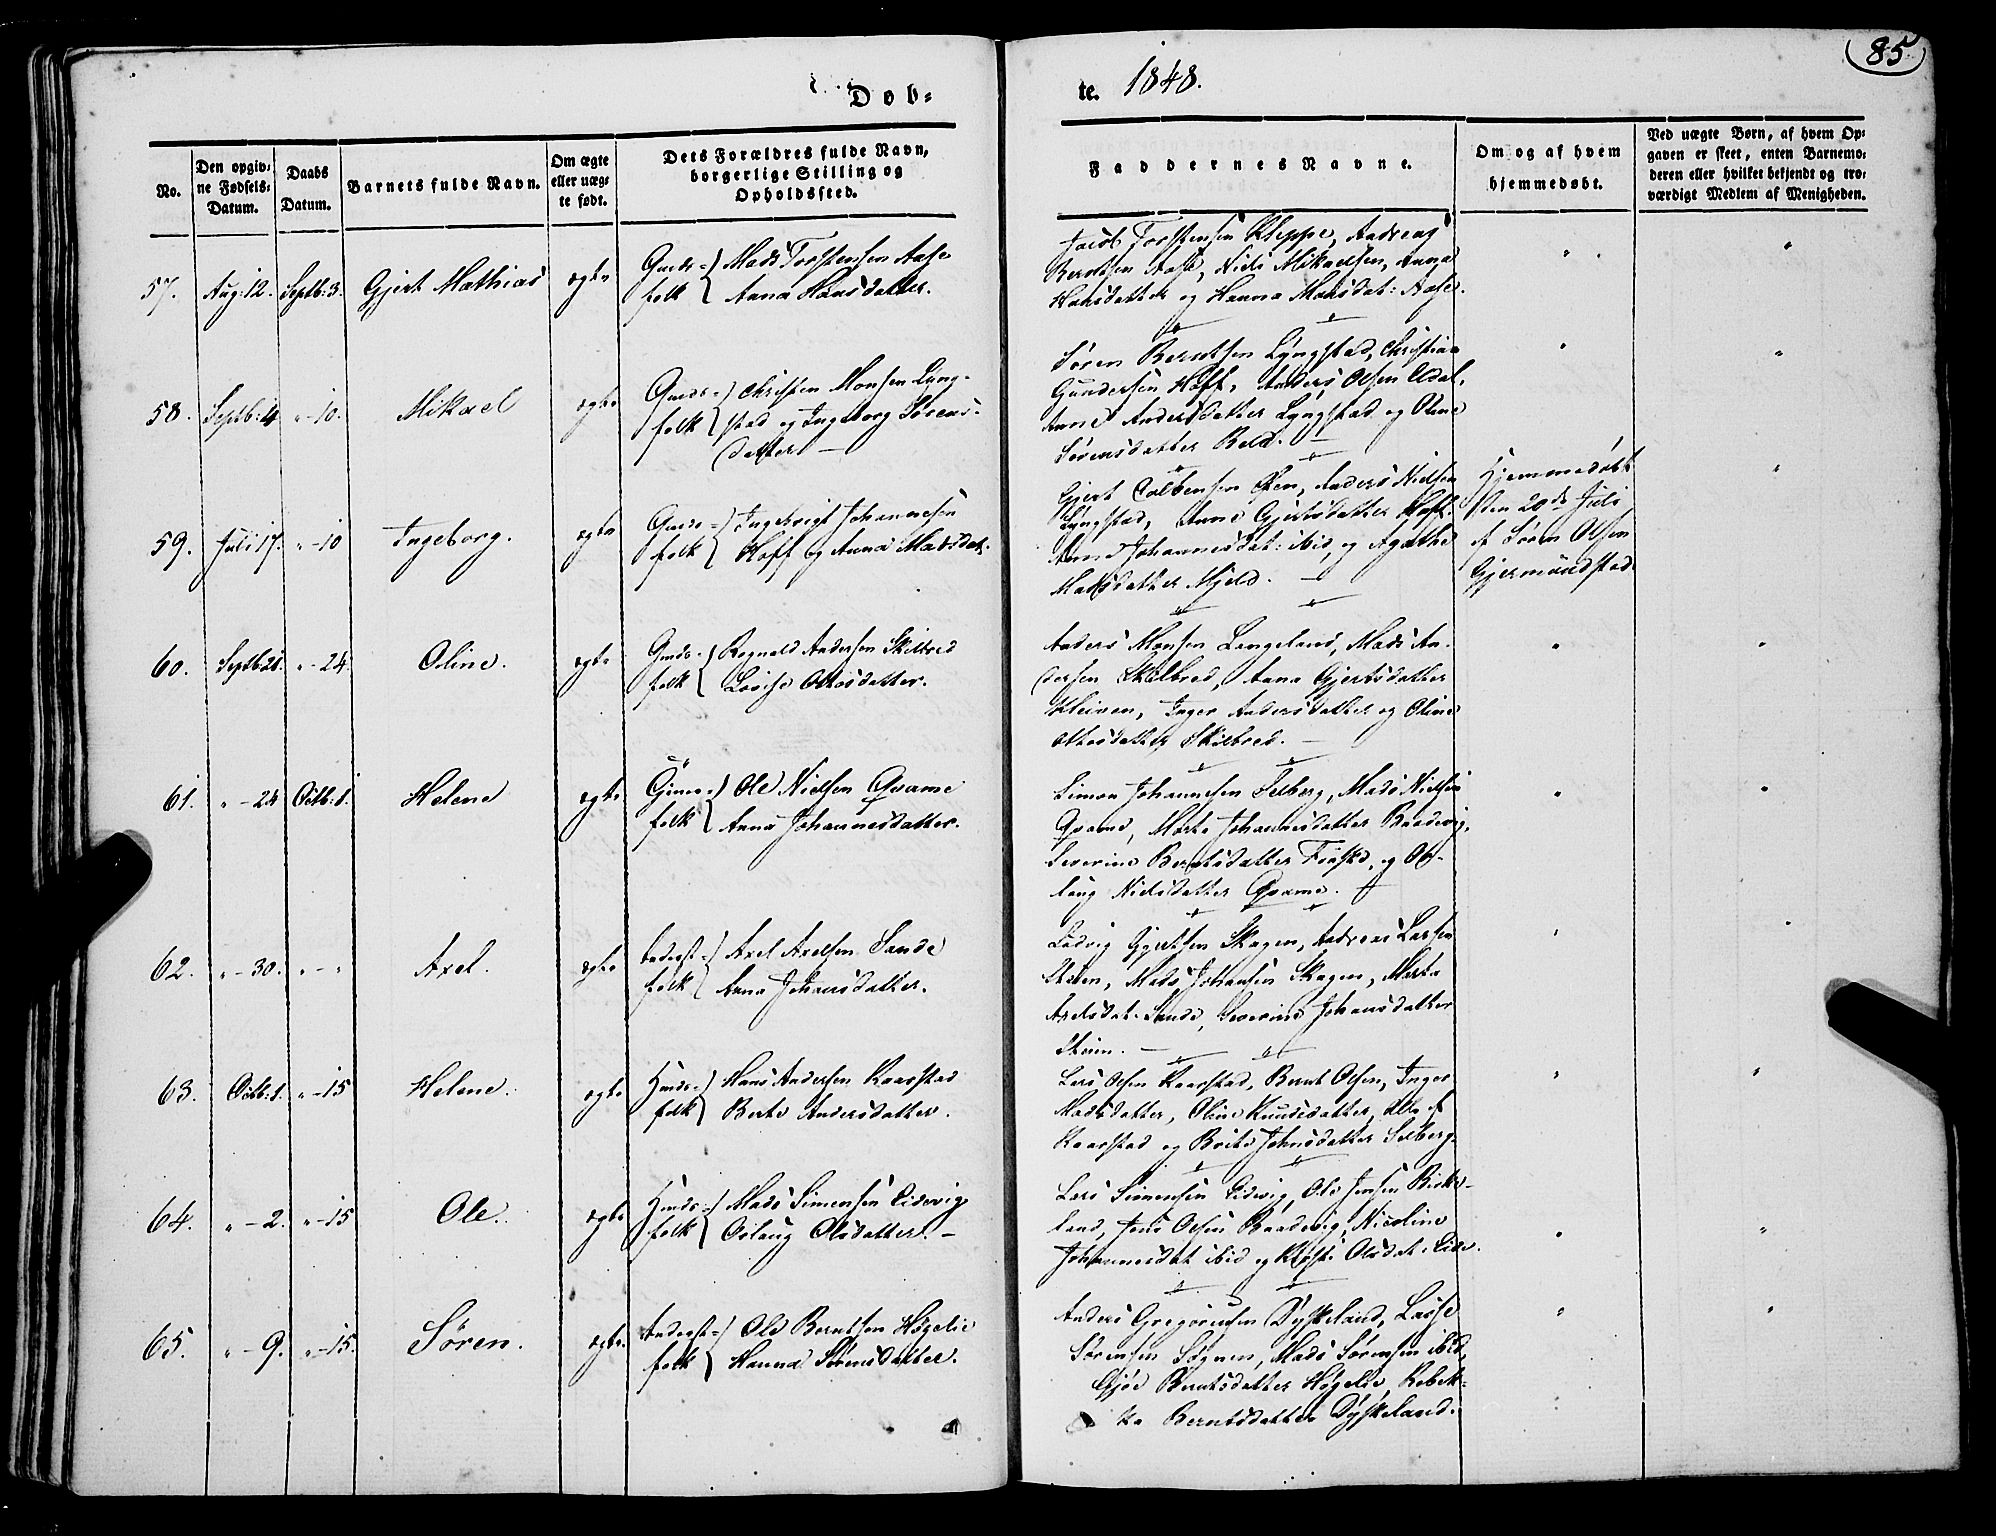 85.
Døb=
te. 1848.
No.
Den opgiv=
ne Fødsels=
Datum.
Daabs
Datum.
Barnets fulde Navn.
Om ægte
eller uæg=
te født.
Dets Forældres fulde Navn,
borgerlige Stilling og
Opholdssted.
Faddernes Navne.
Om og af hvem
hjemmedøbt.
Ved uægte Børn, af hvem Op=
gaven er skeet, enten Barnemo=
deren eller hvilket bekjendt og tro=
værdigt Medlem af Menigheden.
57. Aug: 12. Septb: 3. Gjert Mathias ægte
Gmds= folk
Mads Torstensen Aase
Anna Hansdatter.
Jacob Torstensen Kleppe, Andreas
Berntsen Aase, Niels Mikaelsen, Anna
Hansdatter og Hanna Monsdat: Aase.
58. Septb: 4 " - 10. Mikael ægte
Gmds= folk
Christen Monsen Lyng=
stad og Ingeborg Sørens=
datter —
Søren Berntsen Lyngstad, Christian
Gundersen Hoff, Anders Olsen Edal,
Anne Andersdatter Lyngstad og Oline
Sørensdatter
59. Juli 17. " - 10 Ingeborg. ægte
Gmds= folk
Ingebrigt Johannesen
Hoff og Anna Madsdat.
Gjert Colbensen Øen, Anders Nielsen
Lyngstad, Anne Gjertsdatter Hoff.
Anne Johannesdat: ibid, og Agathe
Madsdatter Mjeld. —
Hjemmedøbt
den 20de Juli
af Søren Olsen
Gjermundstad.
60. Septb 21. " - 24. Oline. ægte
Gmds= folk
Rognald Andersen Skilbred
Lovise Ottosdatter.
Anders Monsen Langeland, Mads An=
dersen Skilbred, Anna Gjertsdatter
Kleiven, Inger Andersdatter og Oline
Ottosdatter Skilbred. —
61. " - 24 Octb: 1. Helene ægte
folk
Ole Nielsen Qvame
Anna Johannesdatter.
Simon Johannesen Selberg, Mads Nielsen
Qvame, Marte Johannesdatter Baadevig,
Severine Berntsdatter og Os=
laug Nielsdatter Qvame.
62. " - 30. " - " Axel. ægte
Inderst= folk
Axel Axelsen Sande
Anna Johansdatter.
Ludvig Gjertsen Skagen, Andreas Larsen
Steien, Mads Johansen Skagen, Marta
Axelsdat. Sande, Severine Johansdatter
Steien. —
63. Octb: 1. " - 15 Helene. ægte
Hmds= folk
Hans Andersen Kaarstad
Berte Andersdatter.
Lars Olsen Kaarstad, Bernt Olsen, Inger
Madsdatter, Oline Knudsdatter, alle af
Kaarstad og Brite Johnsdatter Selberg.
64. " - 2. " - 15 Ole. ægte
Hmds= folk
Mads Simensen Eidevig
Oslaug Olsdatter. —
Lars Simensen Eidevig, Ole Jensen Birke=
land, Jens Olsen Baadevig, Nicoline
Johannesdat ibid og Olsdat: Eide.
65. " - 9. " - 15. Søren. ægte.
Inderst= folk
Ole Berntsen Høgelie
Hanna Sørensdatter.
Anders Gregoriusen Dyskeland, Lasse
Sørensen Sognen, Mads Sørensen ibid,
Gjøe Berntsdatter Høgelie, Rebek=
ka Berntsdatter Dyskeland.